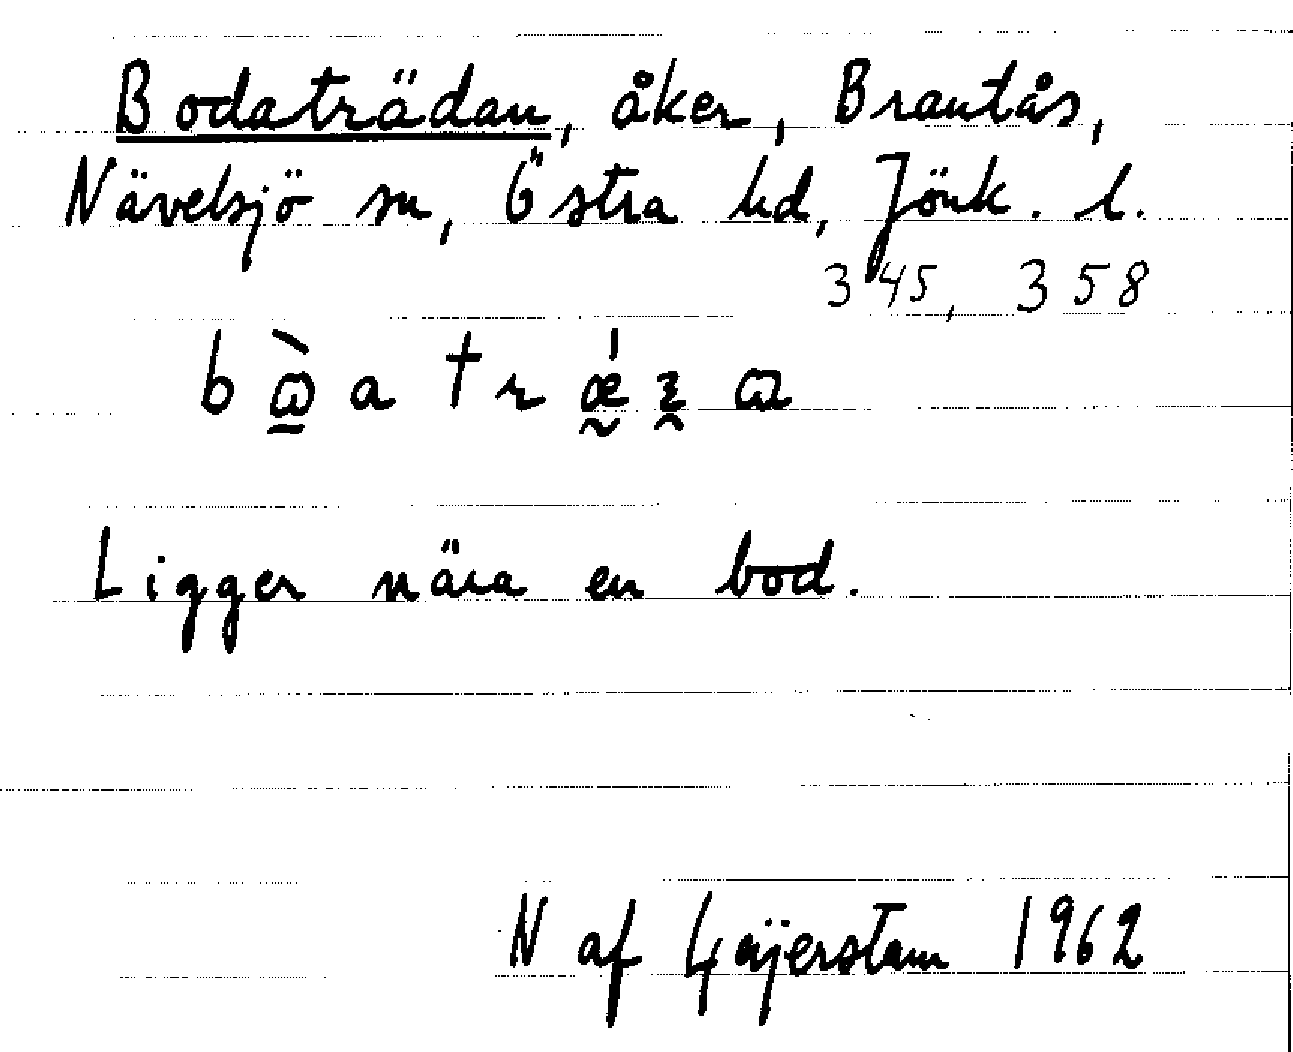 Bodaträdan, åker, Brantås,
Nävelsjö sn, Östra hd, Jönk. l.
345, 358
Ligger nära en bod.
N af Geijerstam 1962